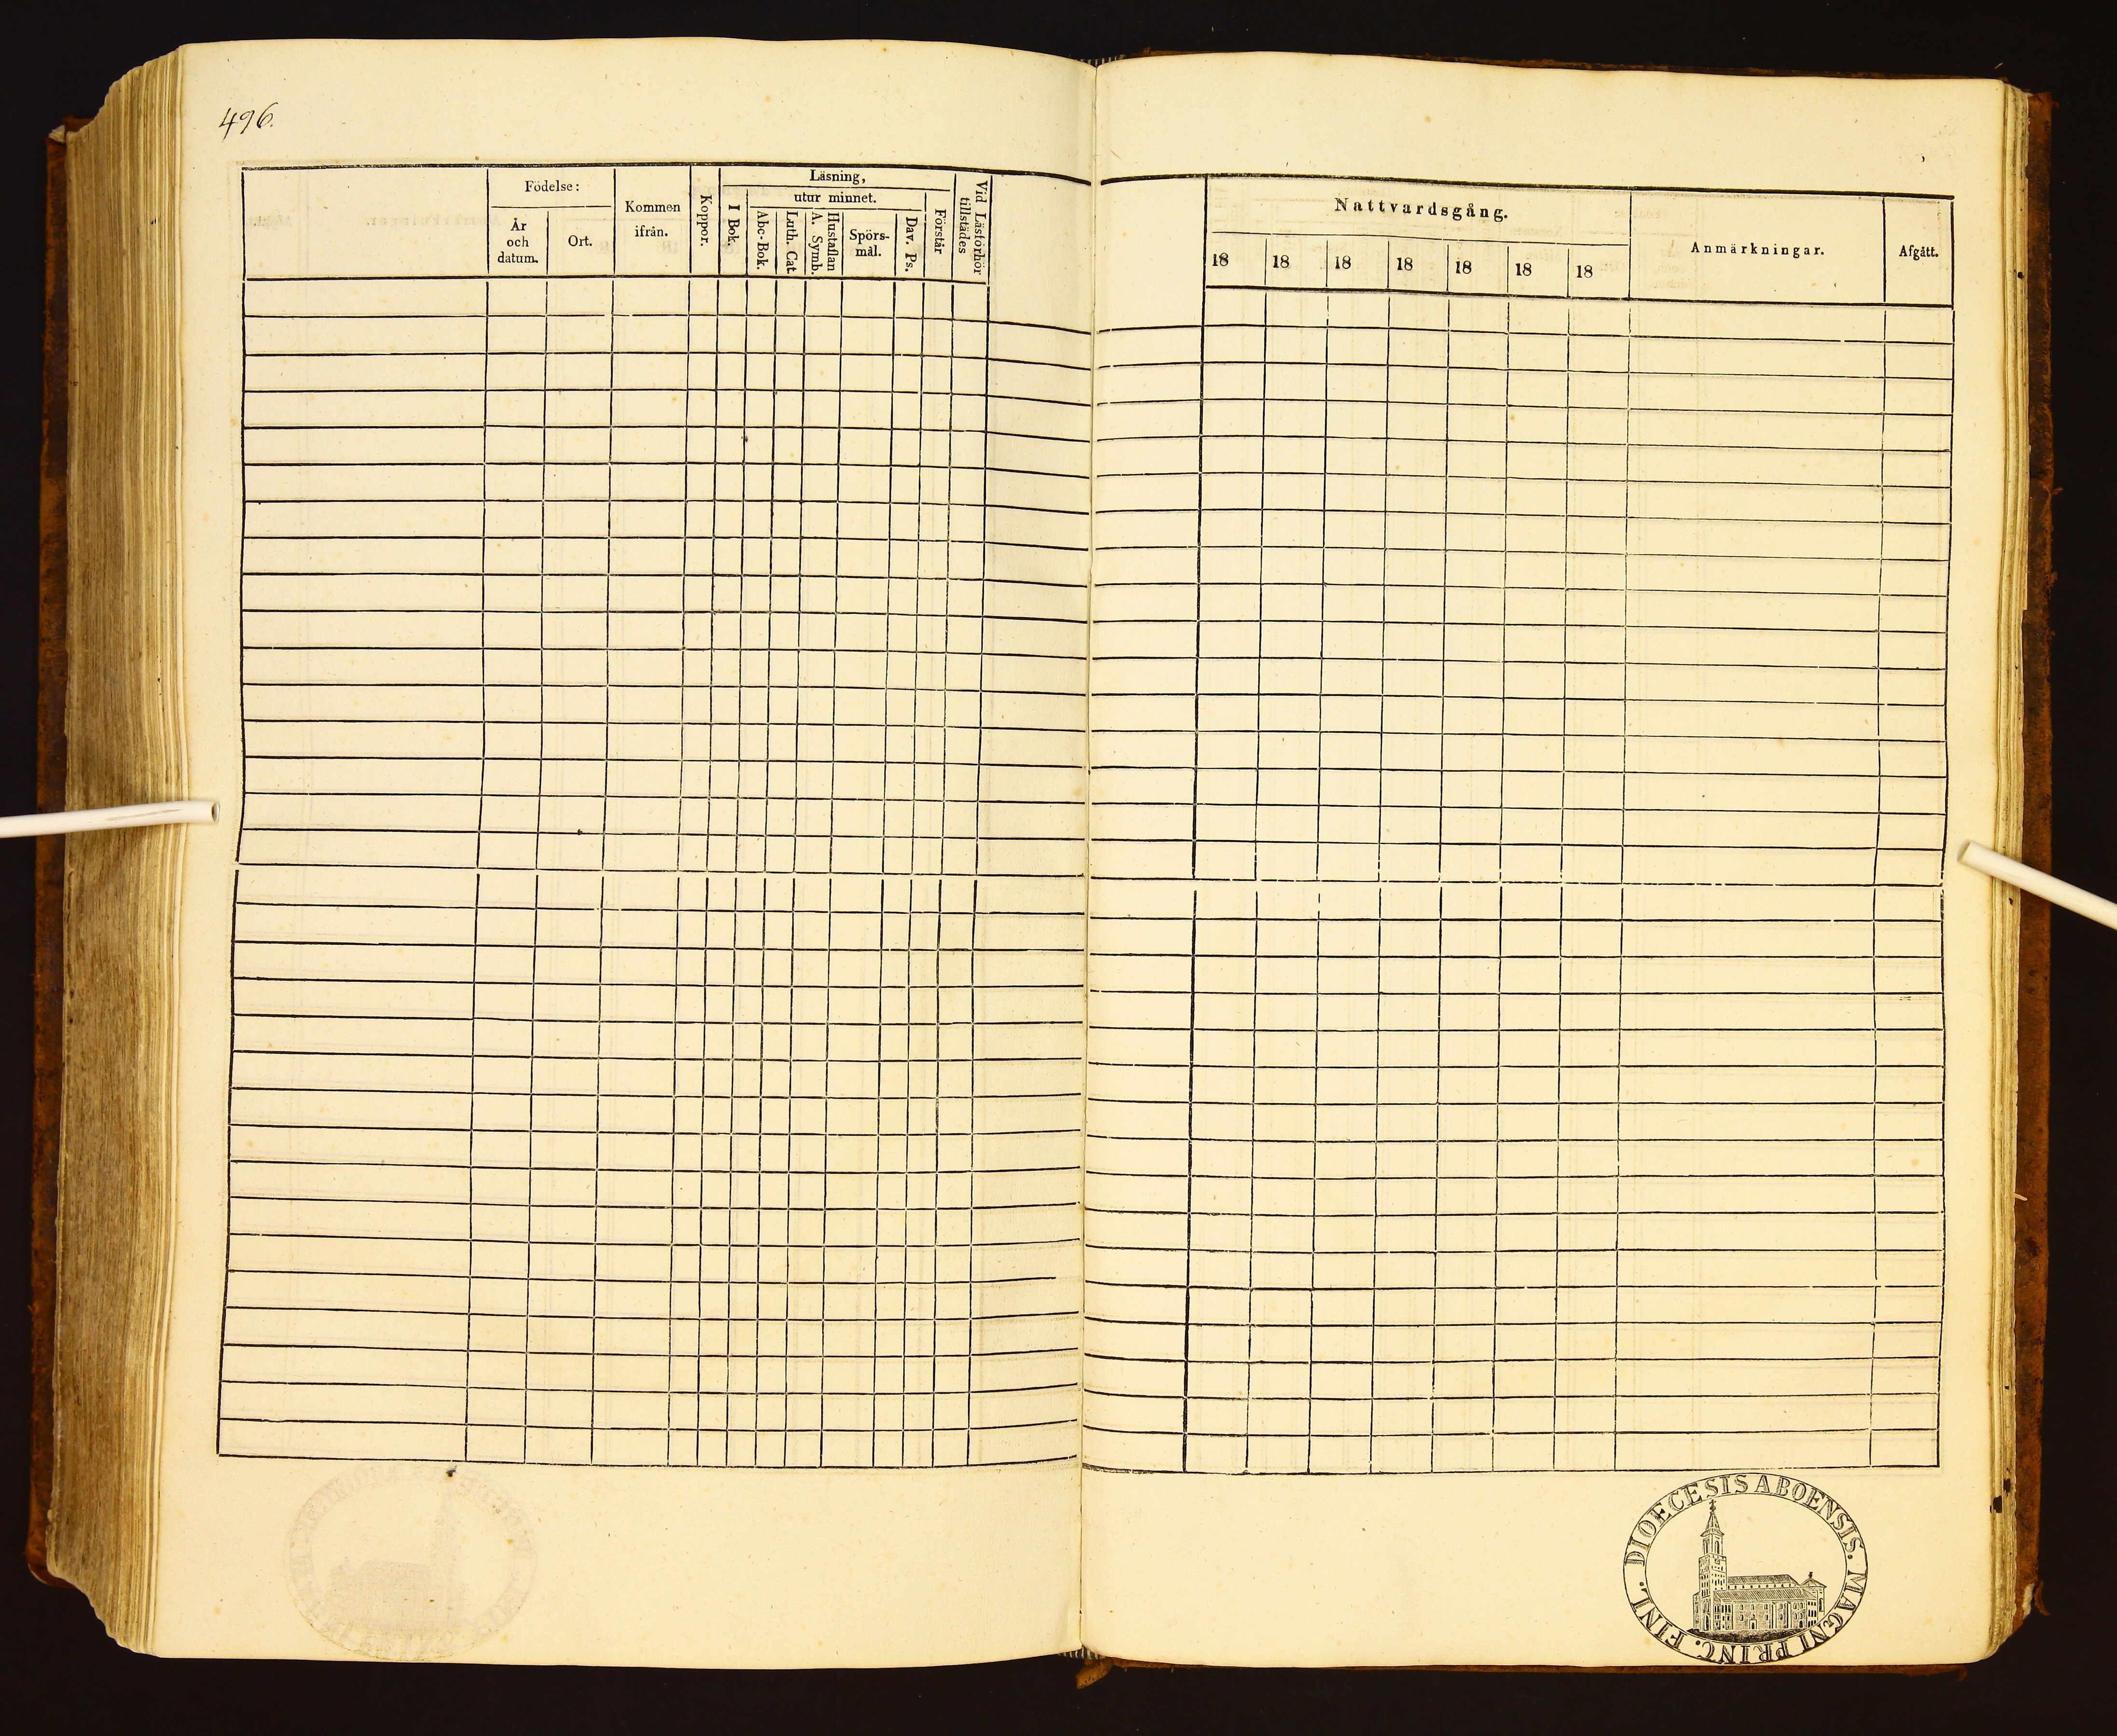 496.
Födelse:
År
och
datum.
Ort.
Kommen
ifrån.
Koppor.
Läsning,
I Bok.
utur minnet.
Abc-Bok.
Luth. Cat.
Hustaflan
A. Symb.
Spörs-
mål.
Dav. Ps.
Förstår
Vid Läsförhör
tillstädes
Nattvardsgång.
18 18 18 18 18 18 18
Anmärkningar.
Afgått.
DIOECESIS ABOENSIS. MAGNI PRINC. FINL.